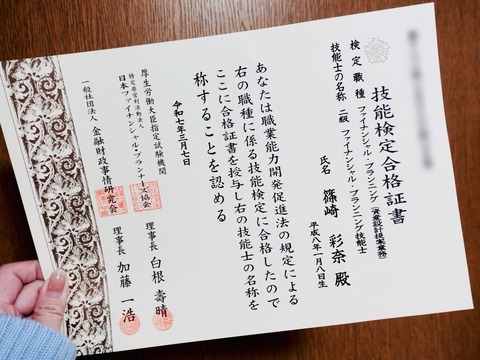 技能検定合格証書
検定職種 ファイナンシャル・プランニング(資産設計提案業務)
技能士の名称 二級 ファイナンシャル・プランニング技能士
氏名 篠崎 彩奈 殿
平成八年一月八日生
あなたは職業能力開発促進法の規定による
右の職種に係る技能検定に合格したので
ここに合格証書を授与し右の技能士の名称を
称することを認める
令和七年三月七日
厚生労働大臣指定試験機関
特定非営利活動法人
日本ファイナンシャル・プランナーズ協会
理事長 白根 壽晴
一般社団法人 金融財政事情研究会
理事長 加藤 一浩